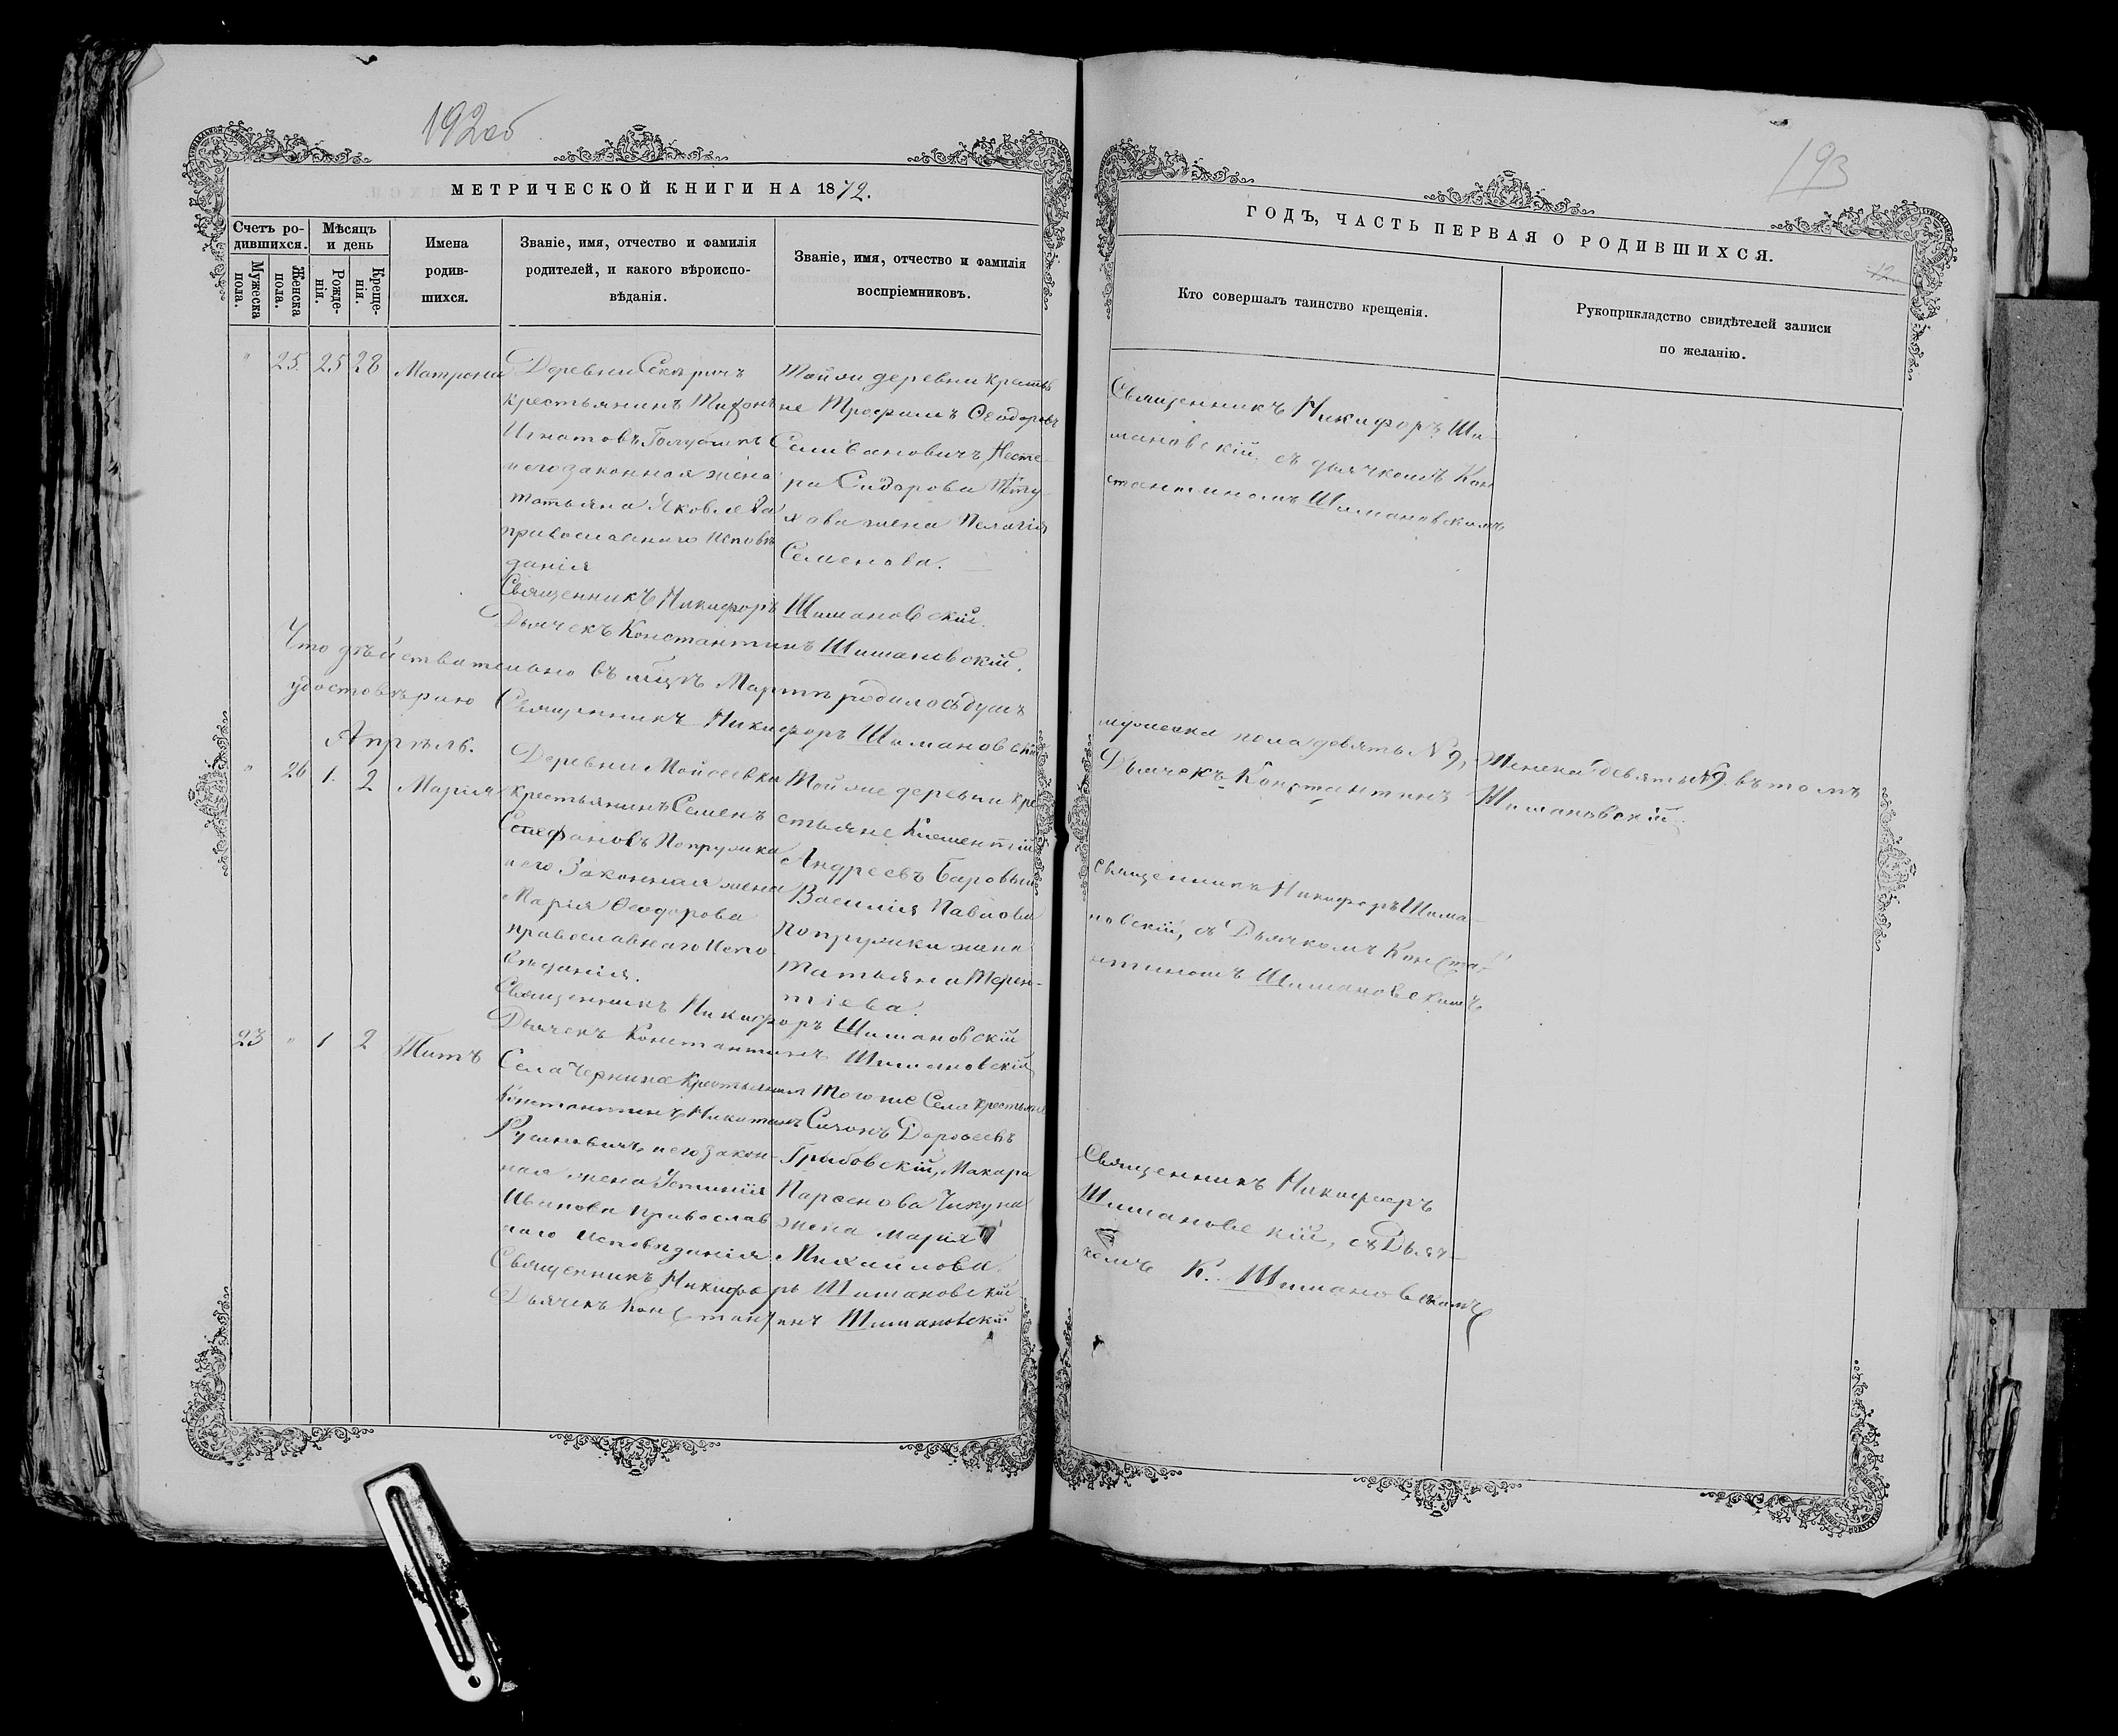 192об
МЕТРИЧЕСКОЙ КНИГИ НА 1872.
Счетъ ро-
дившихся.
Мѣсяцъ
и день
Мужеска пола.
Женска пола.
Рожде-
нія.
Креще-
нія.
Имена
родив-
шихся.
Званіе, имя, отчество и фамилія
родителей, и какого вѣроиспо-
вѣданія.
Званіе, имя, отчество и фамилія
воспріемниковъ.
" 25. 25 28 Матрона
Деревни
крестьянинъ
Игнатовъ
и его законная жена
Татьяна Яковлева
православнаго исповѣ
данія
Той же деревни крестья
не Трофимъ Ѳеодоровъ
Селивановичъ, Несте-
ра Сидорова Пету-
хова жена Пелагія
Семенова.
Священникъ Никифоръ Шимановскій.
Дьячекъ Константинъ Шимановскій.
Что дѣйствительно въ мцѣ Мартѣ родилось душъ
удостовѣряю Священникъ Никифоръ Шимановскій
Апрѣль.
" 26 1. 2 Марія
Деревни Мойсеевки
крестьянинъ Семенъ
Стефановъ Попружка
и его Законная жена
Марія Ѳеодорова
православнаго Испо
вѣданія.
Той же деревни кре
стьяне Климентій
Андреевъ Боровый
Василія Павлова
Попружки жена
Татьяна Терен-
тіева.
Священникъ Никифоръ Шимановскій
Дьячекъ Константинъ Шимановскій
23 " 1 2 Титъ
Села Чернина Крестьянинъ
Константинъ Никитинъ
и его закон-
ная жена Устинія
Иванова Православ
наго Исповѣданія
Того же Села крестьяне
Сазонъ Дороѳеевъ
Грабовскій, Макара
Парѳенова Чикуна
жена Марія
Михайлова.
Священникъ Никифоръ Шимановскій
Дьячекъ Константинъ Шимановскій
193
ГОДЪ, ЧАСТЬ ПЕРВАЯ О РОДИВШИХСЯ.
12
Кто совершалъ таинство крещенія.
Рукоприкладство свидѣтелей записи
по желанію.
Священникъ Никифоръ Ши-
мановскій, съ дьячкомъ Кон
стантиномъ Шимановскимъ
мужеска пола девять №9, Женска девять №9. въ томъ
Дьячекъ Константинъ Шимановскій.
Священникъ Никифоръ Шима-
новскій, съ Дьячкомъ Конста-
нтиномъ Шимановскимъ
Священникъ Никифоръ
Шимановскій, съ Дьяч-
комъ К. Шимановскимъ